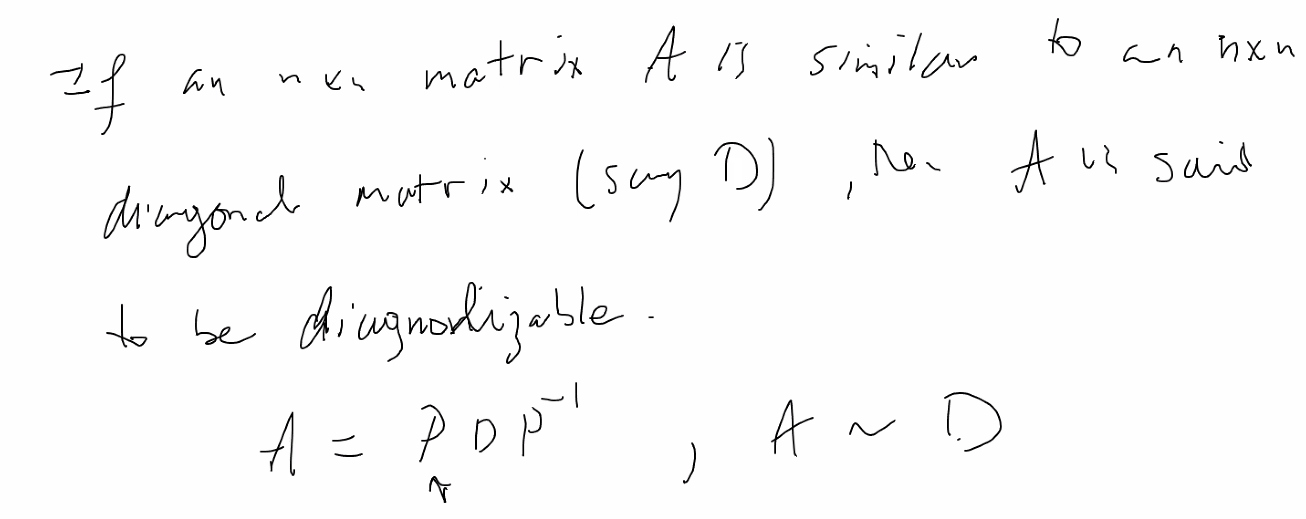 If an nxn matrix A is similar to an nxn
diagonal matrix (say D), then A is said
to be diagnolizable.
A = P D P⁻¹ , A ~ D
↑